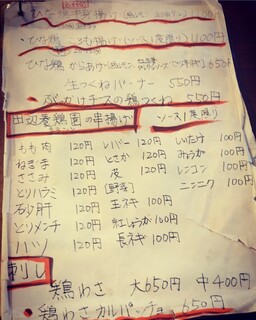 ひな鶏半身揚げ 1100円
ひな鶏もも揚げ（ソース1度限り）1100円
ひな鶏 からあげ 650円
生つくねバーナー 550円
ぶっかけチーズの鶏つくね 550円
田辺養鶏園の串揚げ ソース1度限り
もも肉 120円 レバー 120円 しいたけ 100円
ねぎま 120円 とさか 120円 みょうが 100円
ささみ 120円 皮 120円 レンコン 100円
とりハラミ 120円 【野菜】 ニンニク 100円
砂肝 120円 玉ネギ 100円
とりメンチ 120円 紅しょうが 100円
ハツ 120円 長ネギ 100円
刺し
鶏わさ 大650円 中400円
・鶏わさカルパッチョ 650円